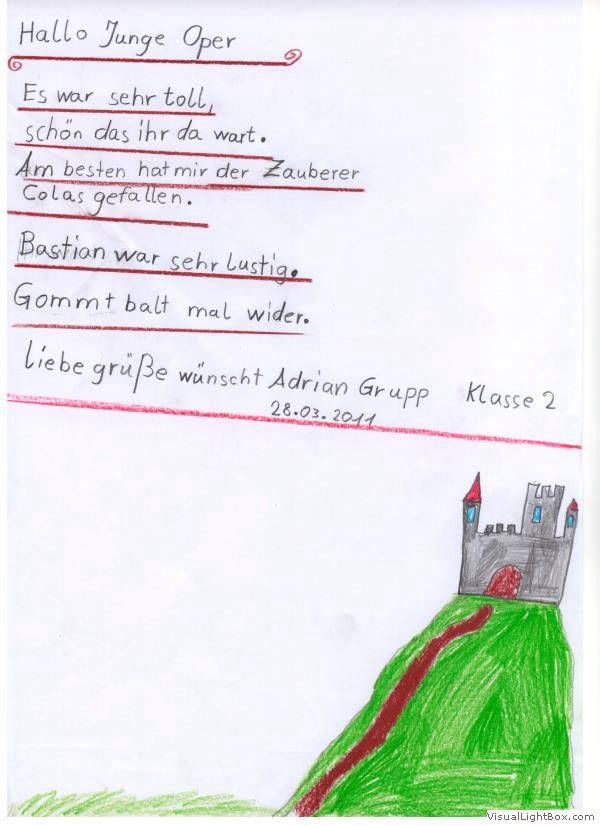 Hallo Junge Oper
Es war sehr toll,
schön das ihr da wart.
Am besten hat mir der Zauberer
Colas gefallen.
Bastian war sehr lustig.
Gommt balt mal wider.
liebe grüße wünscht Adrian Grupp Klasse 2
28.03.2011
VisualLightBox.com